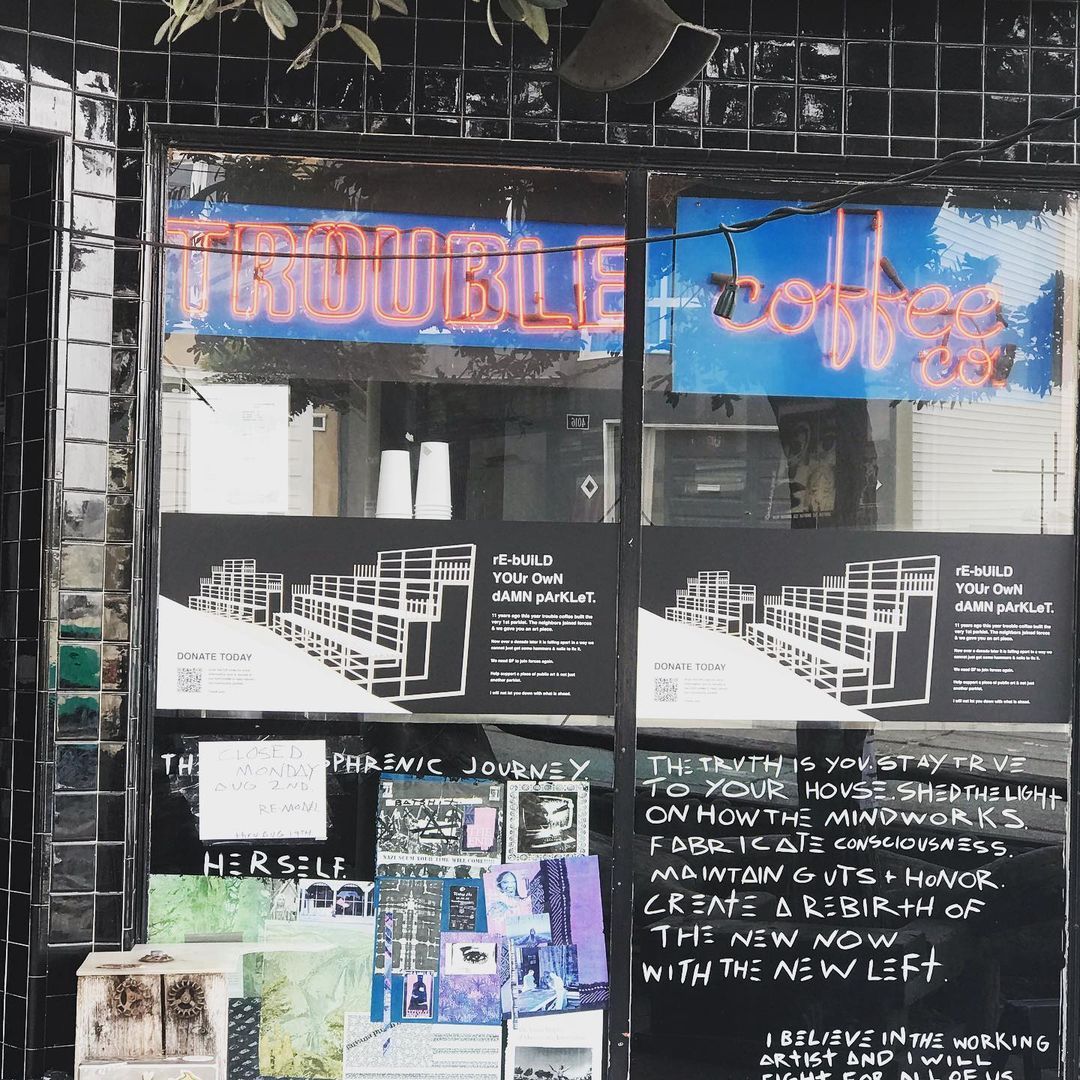 TROUBLE
coffee
co.
4016
rE-bUiLD
YOUr OwN
dAMN pArKLeT.
11 years ago this year trouble coffee built the
very 1st parklet. The neighbors joined forces
& we gave you an art piece.
Now over a decade later it is falling apart in a way we
cannot just get some hammers & nails to fix it.
We need SF to join forces again.
Help support a piece of public art & not just
another parklet.
I will not let you down with what is ahead.
DONATE TODAY
rE-bUiLD
YOUr OwN
dAMN pArKLeT.
11 years ago this year trouble coffee built the
very 1st parklet. The neighbors joined forces
& we gave you an art piece.
Now over a decade later it is falling apart in a way we
cannot just get some hammers & nails to fix it.
We need SF to join forces again.
Help support a piece of public art & not just
another parklet.
I will not let you down with what is ahead.
DONATE TODAY
JOURNEY
CLOSED
MONDAY
AUG 2ND.
REMODEL
thru AUG 19TH
HERSELF.
NAZI SCUM YOUR TIME WILL COME!!
THE TRUTH IS YOU. STAY TRUE
TO YOUR HOUSE. SHED THE LIGHT
ON HOW THE MIND WORKS.
FABRICATE CONSCIOUSNESS.
MAINTAIN GUTS + HONOR.
CREATE A REBIRTH OF
THE NEW NOW
WITH THE NEW LEFT.
I BELIEVE IN THE WORKING
ARTIST AND I WILL
FIGHT FOR ALL OF US